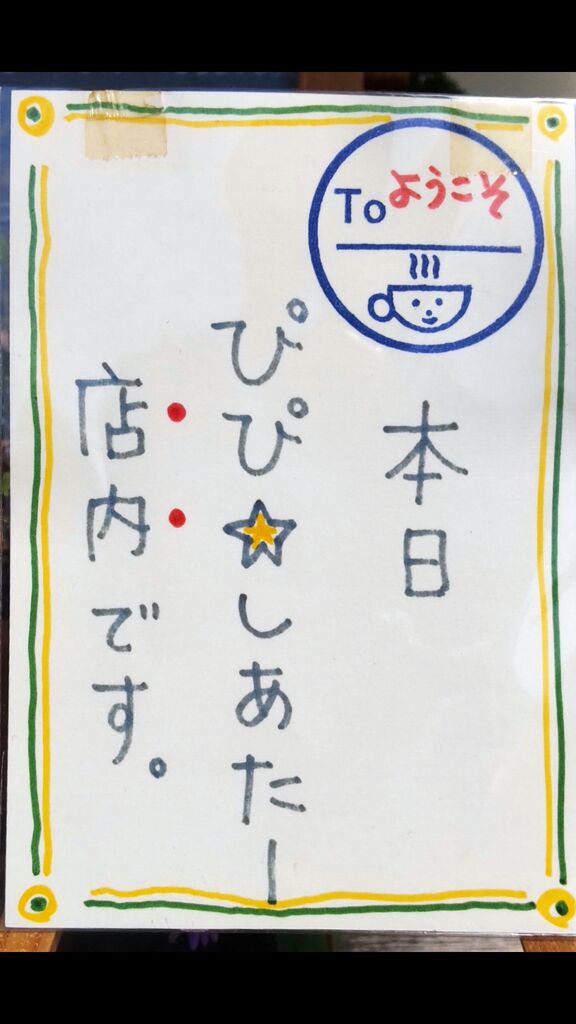 To ようこそ
本日
ぴぴ☆しあたー
店内です。